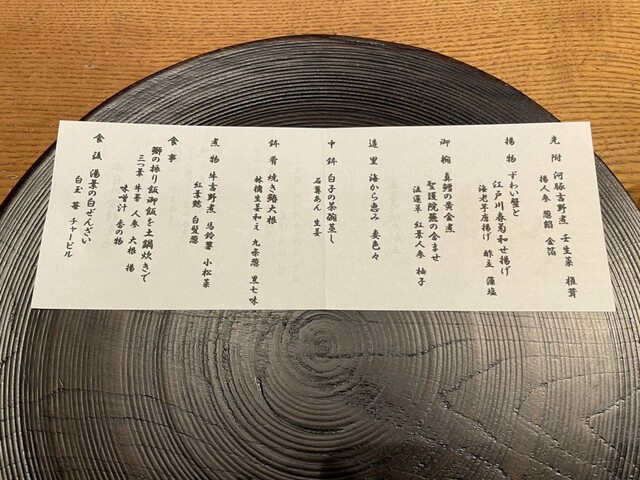 先附 河豚吉野煮 壬生菜 椎茸
揚人参 葱餡 金箔
揚物 ずわい蟹と
江戸川春菊和せ揚げ
海老芋唐揚げ 酢立 藻塩
御椀 真鱈の黄金煮
聖護院蕪の含ませ
法蓮草 紅葉人参 柚子
造里 海から恵み 妻色々
中鉢 白子の茶碗蒸し
石蓴あん 生姜
鉢肴 焼き鰆大根
林檎生姜和え 九条葱 黒七味
煮物 牛吉野煮 馬鈴薯 小松菜
紅葉麩 白髪葱
食事
鰤の振り飯御飯を土鍋炊きで
三つ葉 牛蒡 人参 大根 揚
味噌汁 香の物
食後 湯葉の白ぜんざい
白玉 苺 チャービル